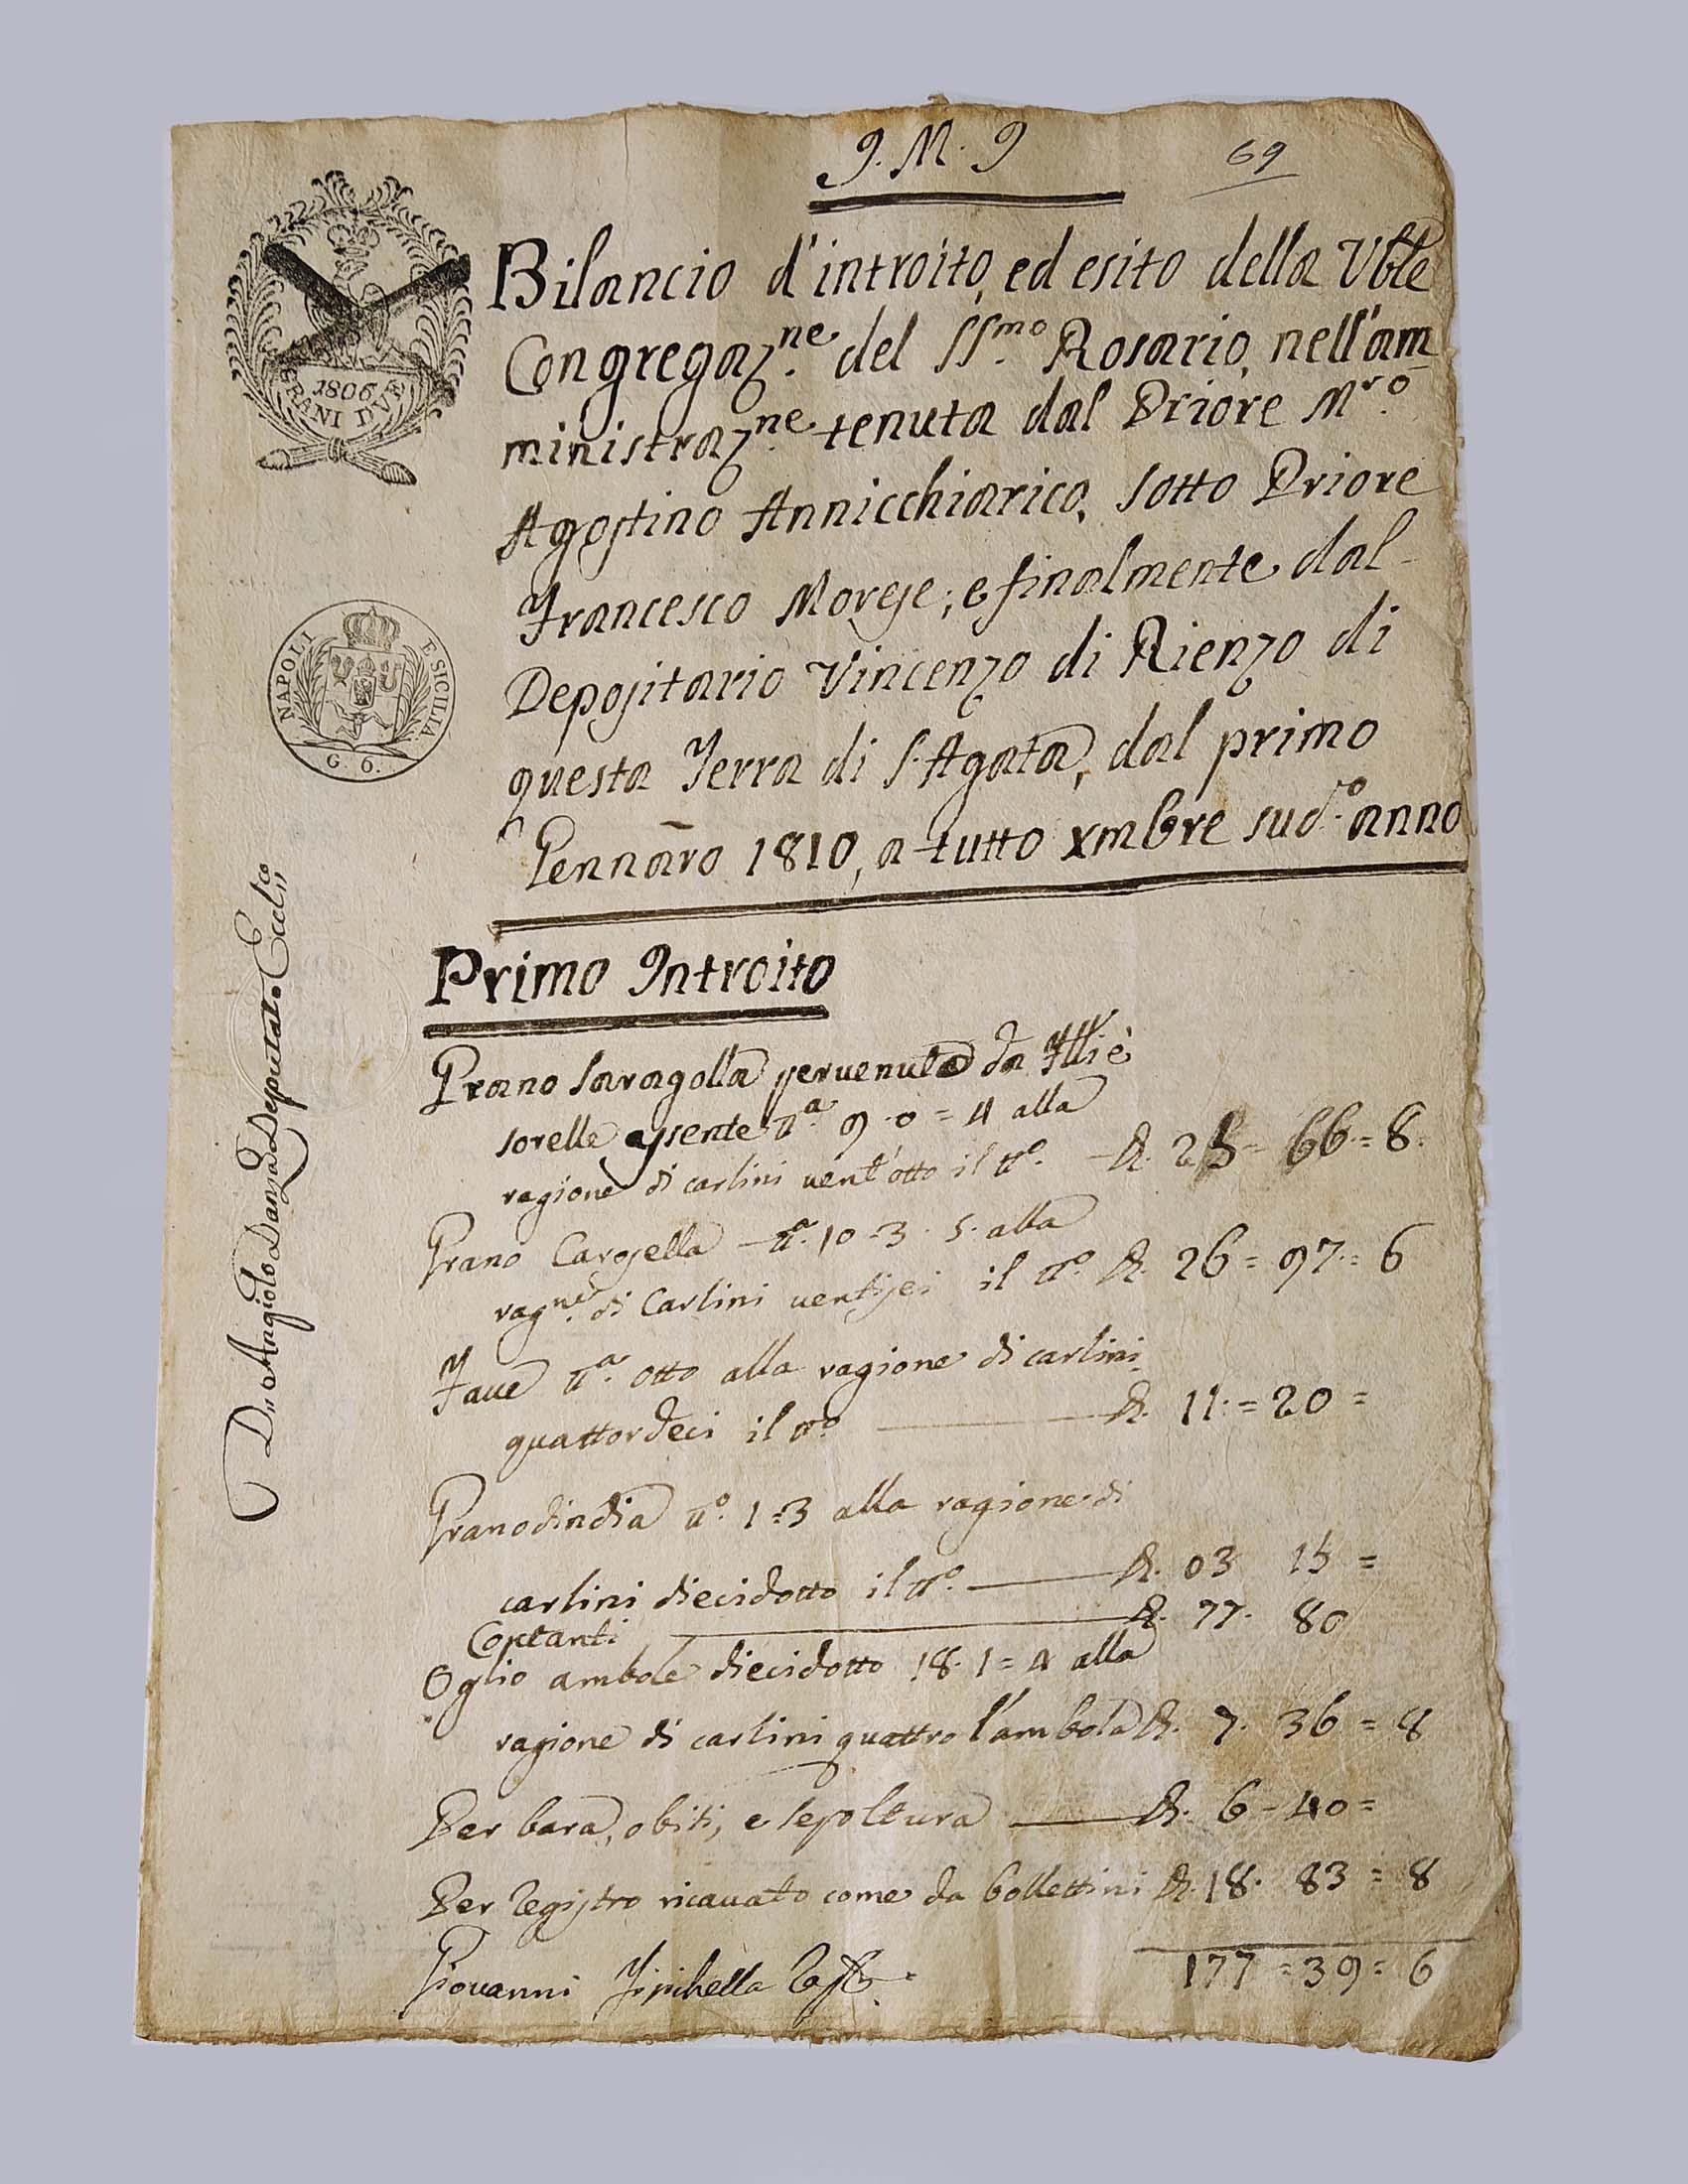 J. M. J
69
Bilancio d'introito, ed esito della Vble
Congregaz.ne del SS.mo Rosario, nell'am
ministraz.ne tenuta dal Priore M.ro
Agostino Annicchiarico, sotto Priore
Francesco Morese; e finalmente dal
Depositario Vincenzo di Rienzo di
questa Terra di S. Agata, dal primo
Gennaro 1810, a tutto xmbre sud.o anno
1806
NAPOLI E SICILIA
G. 6.
D. Angiolo Danza Deputat. Eccl.co
Primo Introito
Grano saragolla pervenuta da
sorelle esente T.a 9. 0 = 4 alla
ragione di carlini vent'otto il T.o - D. 25 = 66 = 8.
Grano Carosella - T.a 10 = 3. 5. alla
rag.ne di Carlini ventisei il T.o D. 26 = 97 = 6
Fave T.a otto alla ragione di carlini
quattordeci il T.o D. 11 = 20 =
Granodindia T.o 1 = 3 alla ragione di
carlini diecidotto il T.o D. 03 15 =
Contanti D. 77. 80
Oglio ambole diecidotto 18. 1 = 4 alla
ragione di carlini quattro l'ambola D. 7. 36 = 8
Per bara, obiti, e sepoltura D. 6 = 40 =
Per registro ricavato come da bollettini D. 18. 83 = 8
Giovanni
177 = 39 = 6